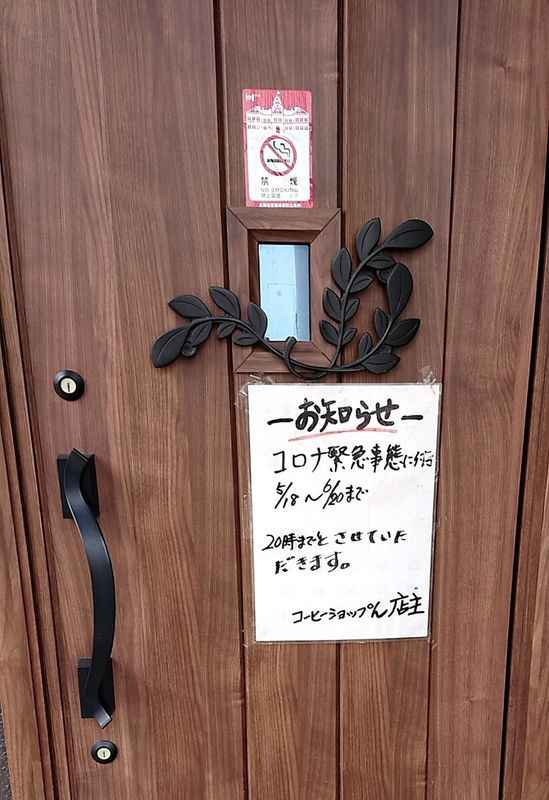 禁 煙
NO SMOKING
ーお知らせー
コロナ緊急事態に付
5/18～6/20まで
20時までとさせていた
だきます。
コーヒーショップん 店主